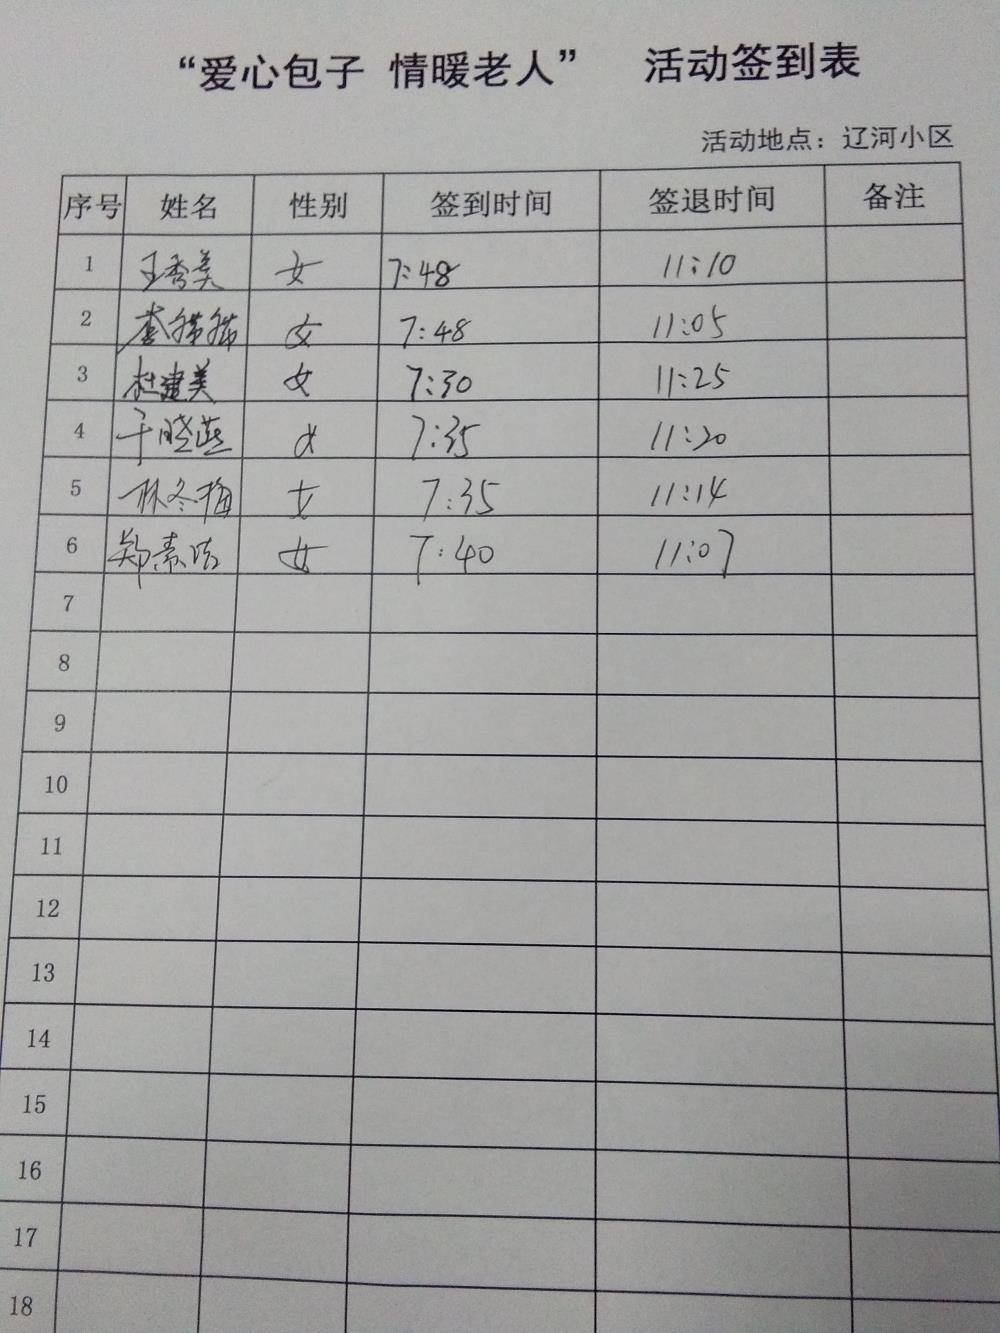 “爱心包子 情暖老人” 活动签到表
活动地点：辽河小区
序号 姓名 性别 签到时间 签退时间 备注
1 王秀美 女 7:48 11:10
2 女 7:48 11:05
3 杜建美 女 7:30 11:25
4 于晓燕 女 7:35 11:20
5 林冬梅 女 7:35 11:14
6 郑素 女 7:40 11:07
7
8
9
10
11
12
13
14
15
16
17
18